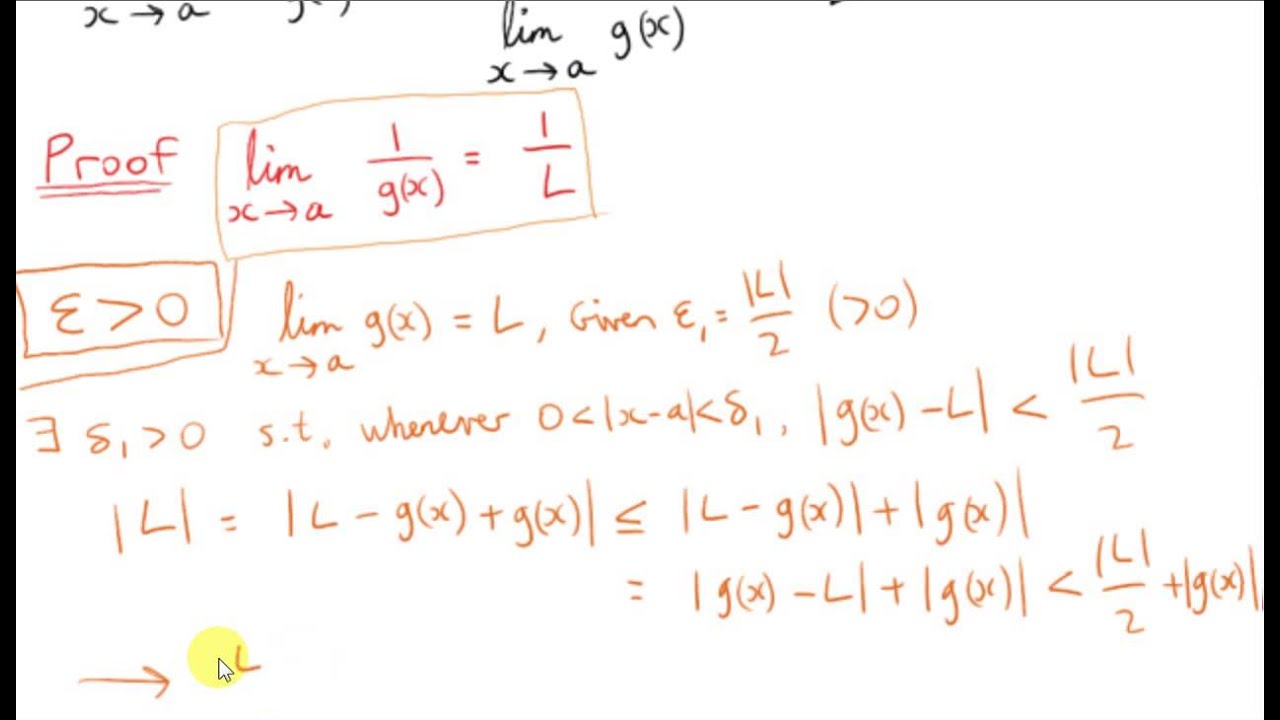 x→a
lim g(x)
x→a
Proof lim 1/g(x) = 1/L
x→a
ε>0 lim g(x) = L, Given ε₁ = |L|/2 (>0)
x→a
∃ δ₁>0 s.t. whenever 0<|x-a|<δ₁, |g(x)-L| < |L|/2
|L| = |L-g(x)+g(x)| ≤ |L-g(x)|+|g(x)|
= |g(x)-L|+|g(x)| < |L|/2 +|g(x)|
→ L